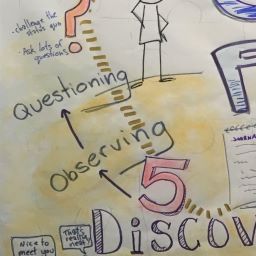 - challenge the
status quo
- Ask lots of
questions
?
Questioning
Observing
5
Discov
Nice to
meet you
That's
really
neat!